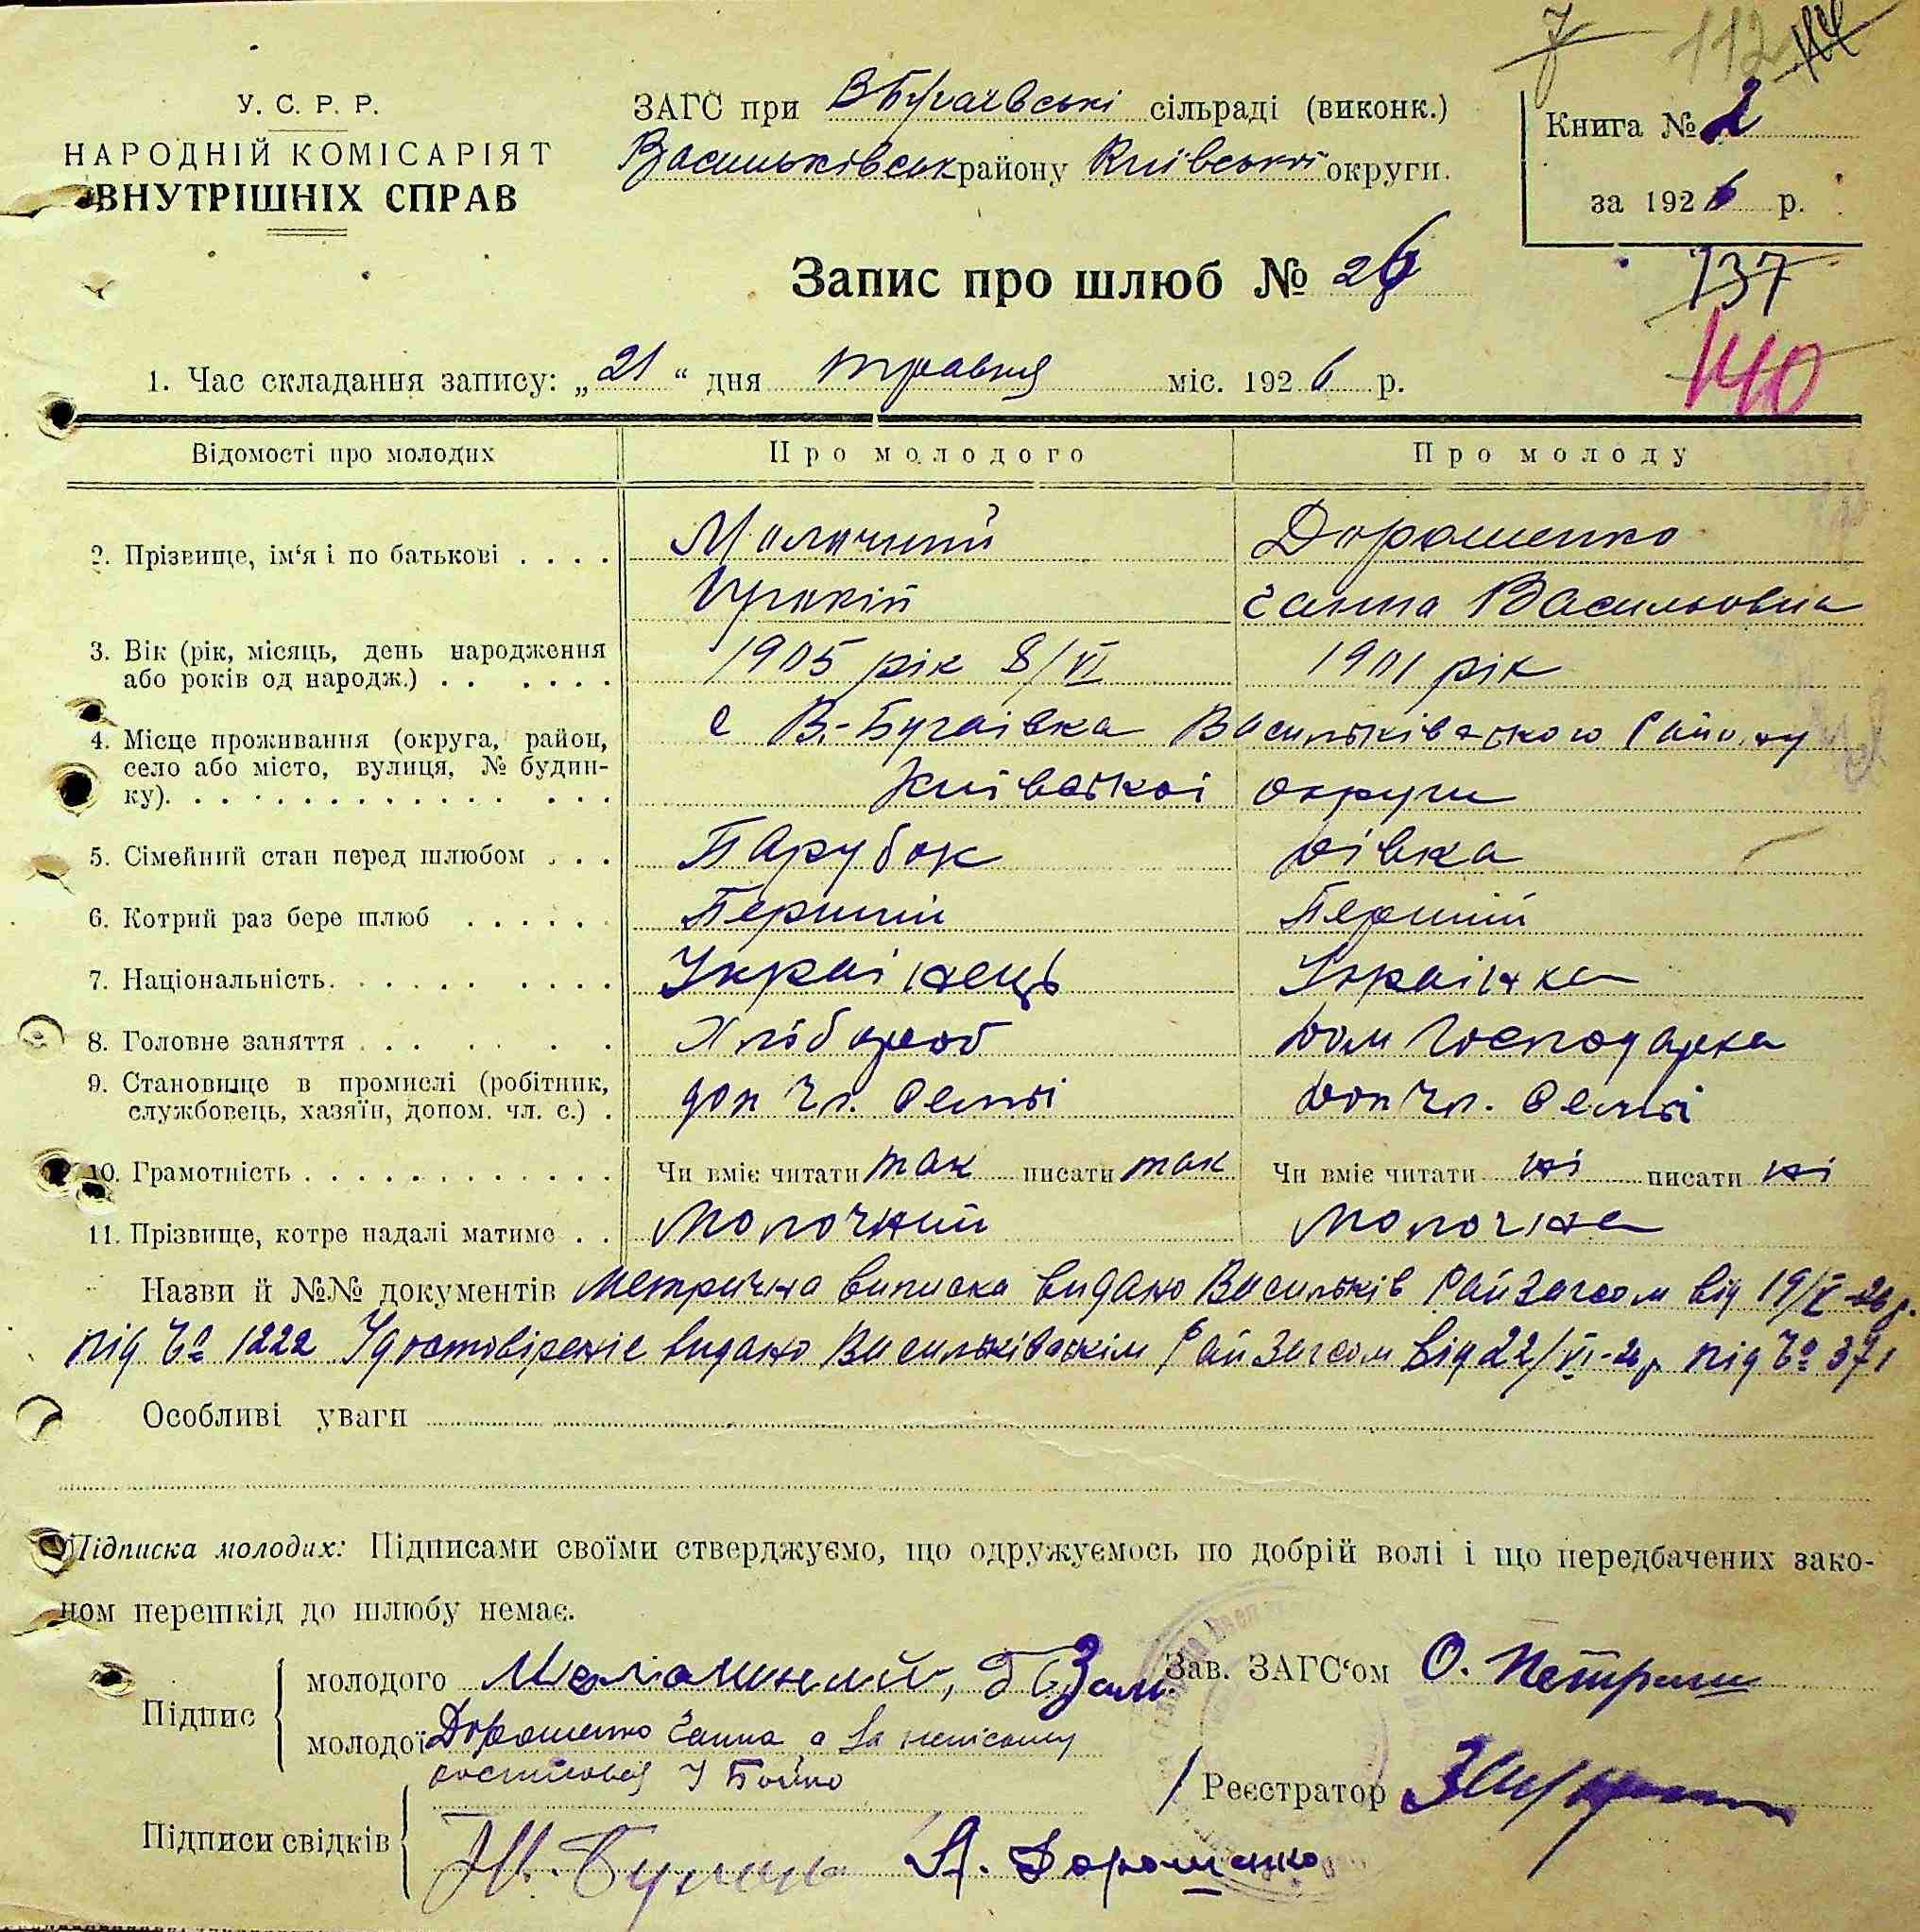 7 112
У. С. Р. Р.
НАРОДНІЙ КОМІСАРІЯТ
ВНУТРІШНІХ СПРАВ
ЗАГС при ВБугаївські сільраді (виконк.)
Васильківськ району Київської округи.
Книга № 2
за 1926 р.
Запис про шлюб № 26
137
140
1. Час складання запису: „21“ дня травня міс. 1926 р.
Відомості про молодих Про молодого Про молоду
2. Прізвище, ім‘я і по батькові . . . . Молочний Дорошенко
Ганна Васильовна
3. Вік (рік, місяць, день народження 1905 рік 8/VI 1901 рік
або років од народж.) . . . . . .
4. Місце проживання (округа, район, с В.-Бугаївка Васильківського Району
село або місто, вулиця, № будин-
ку). . . . . . . . . . . . . . . . Київської округи
5. Сімейний стан перед шлюбом . . . Парубок дівка
6. Котрий раз бере шлюб . . . . . . Перший Перший
7. Національність. . . . . . . . . . Українець Українка
8. Головне заняття . . . . . . . . Хлібороб дом Господарка
9. Становище в промислі (робітник,
службовець, хазяїн, допом. чл. с.) . доп Чл. Семьі доп Чл. Семьі
10. Грамотність . . . . . . . . . . . . . Чи вміє читати так писати так Чи вміє читати ні писати ні
11. Прізвище, котре надалі матиме . . Молочний Молочна
Назви й №№ документів Метрична виписка видано Васильків Райзагсом від 19/V-26 р.
під Ч° 1222 Удостовіреніє видано Васильківським Райзагсом від 22/VI-26 р. під Ч° 371
Особливі уваги
Підписка молодих: Підписами своїми стверджуємо, що одружуємось по добрій волі і що передбачених зако-
ном перешкід до шлюбу немає.
Підпис
молодого Зав. ЗАГС‘ом О. Петраш
молодої Дорошенко Ганна а за неписьму
І Бойко
/ Реєстратор
Підписи свідків А. Дорошенко